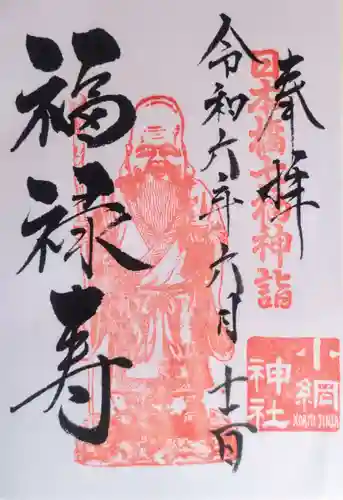 奉拝
日本橋七福神詣
令和六年六月十二日
福禄寿
小網
神社
KOAMI JINJA